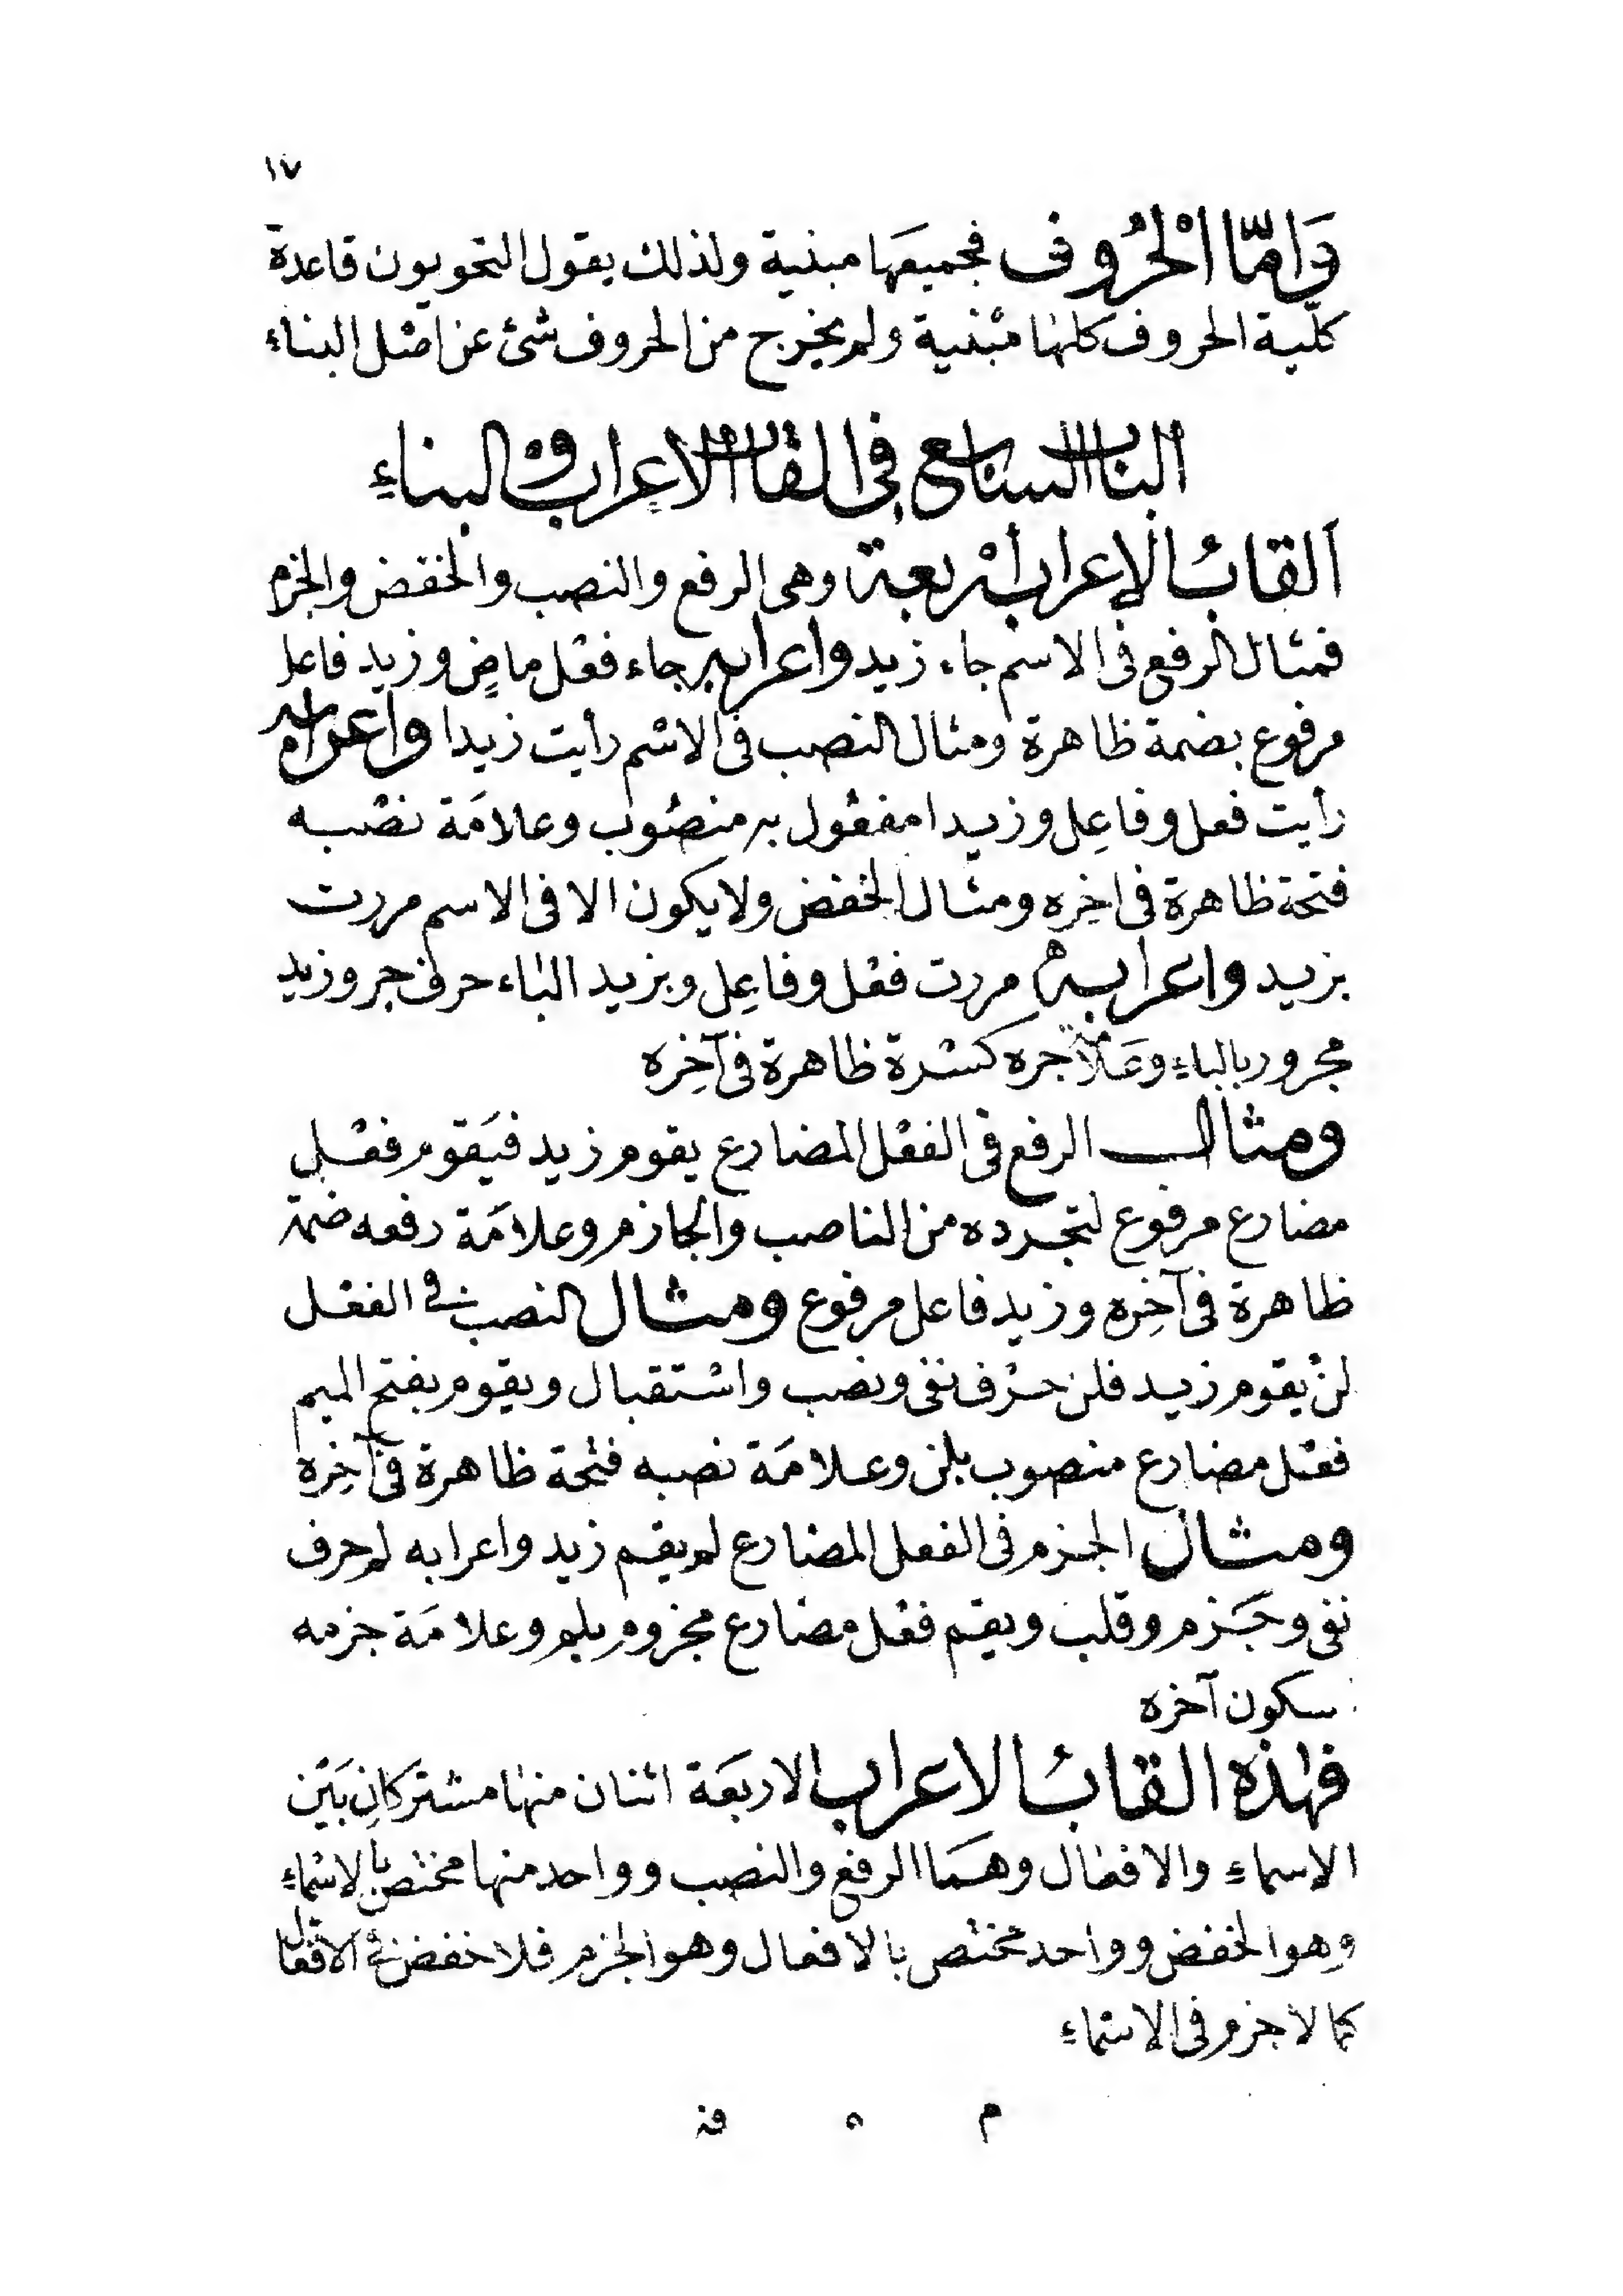 ١٧
وَامّا الْحُرُوف فجميعَها مبنية ولذلك يقول النحويون قاعدة
كلّية الحروف كلها مبْنية ولم يخرج من الحروف شئ عن اصْل البناء
الباب السابع فى القاب الاعراب والبناءِ
القابُ الإعراب أرْبعة وهى الرفع والنصب والخفض والجزم
فمثال الرفع فى الاسم جاء زيد واعرابه جاء فعْل ماضٍ وزيد فاعل
مرفوع بضمة ظاهرة ومثال النصب فى الاسْم رأيت زيدا واعرابه
رأيت فعل وفاعِل وزيدا مفعْول به منصُوب وعلامَة نصْبه
فتحة ظاهرة فى اخِره ومثال الخفض ولا يكون الا فى الاسم مررت
بزيد واعرابه مررت فعْل وفاعِل وبزيد الباء حرف جر وزيد
مجرور بالباءِ وعَلامة جره كسْرة ظاهرة فى آخِره
ومثال الرفع فى الفعْل المضارع يقوم زيد فيَقوم فعْل
مضارع مرفوع لتجرده من الناصب والجازم وعلامَة رفعه ضمة
ظاهرة فى آخِره وزيد فاعل مرفوع ومثال النصب فى الفعْل
لنْ يقوم زيد فلن حرْف نفى ونصب واسْتقبال ويقوم بفتح الميم
فعْل مضارع منصوب بلن وعلامَة نصبه فتْحة ظاهرة فى آخِره
ومثال الجزم فى الفعل المضارع لم يقم زيد واعرابه لم حرف
نفى وجَزم وقلب ويقم فعْل مضارع مجزوم بلم وعلامَة جزمه
سكون آخره
فهٰذه القابُ الاعراب الاربعَة اثنان منها مشتركانِ بَيْن
الاسماءِ والافعال وهمَا الرفع والنصب وواحد منها مختص بالاسْماءِ
وهو الخفض وواحد مختص بالافعال وهو الجزم فلا خفض فى الافعال
كما لا جزم فى الاسْماءِ
م ٥ فـ